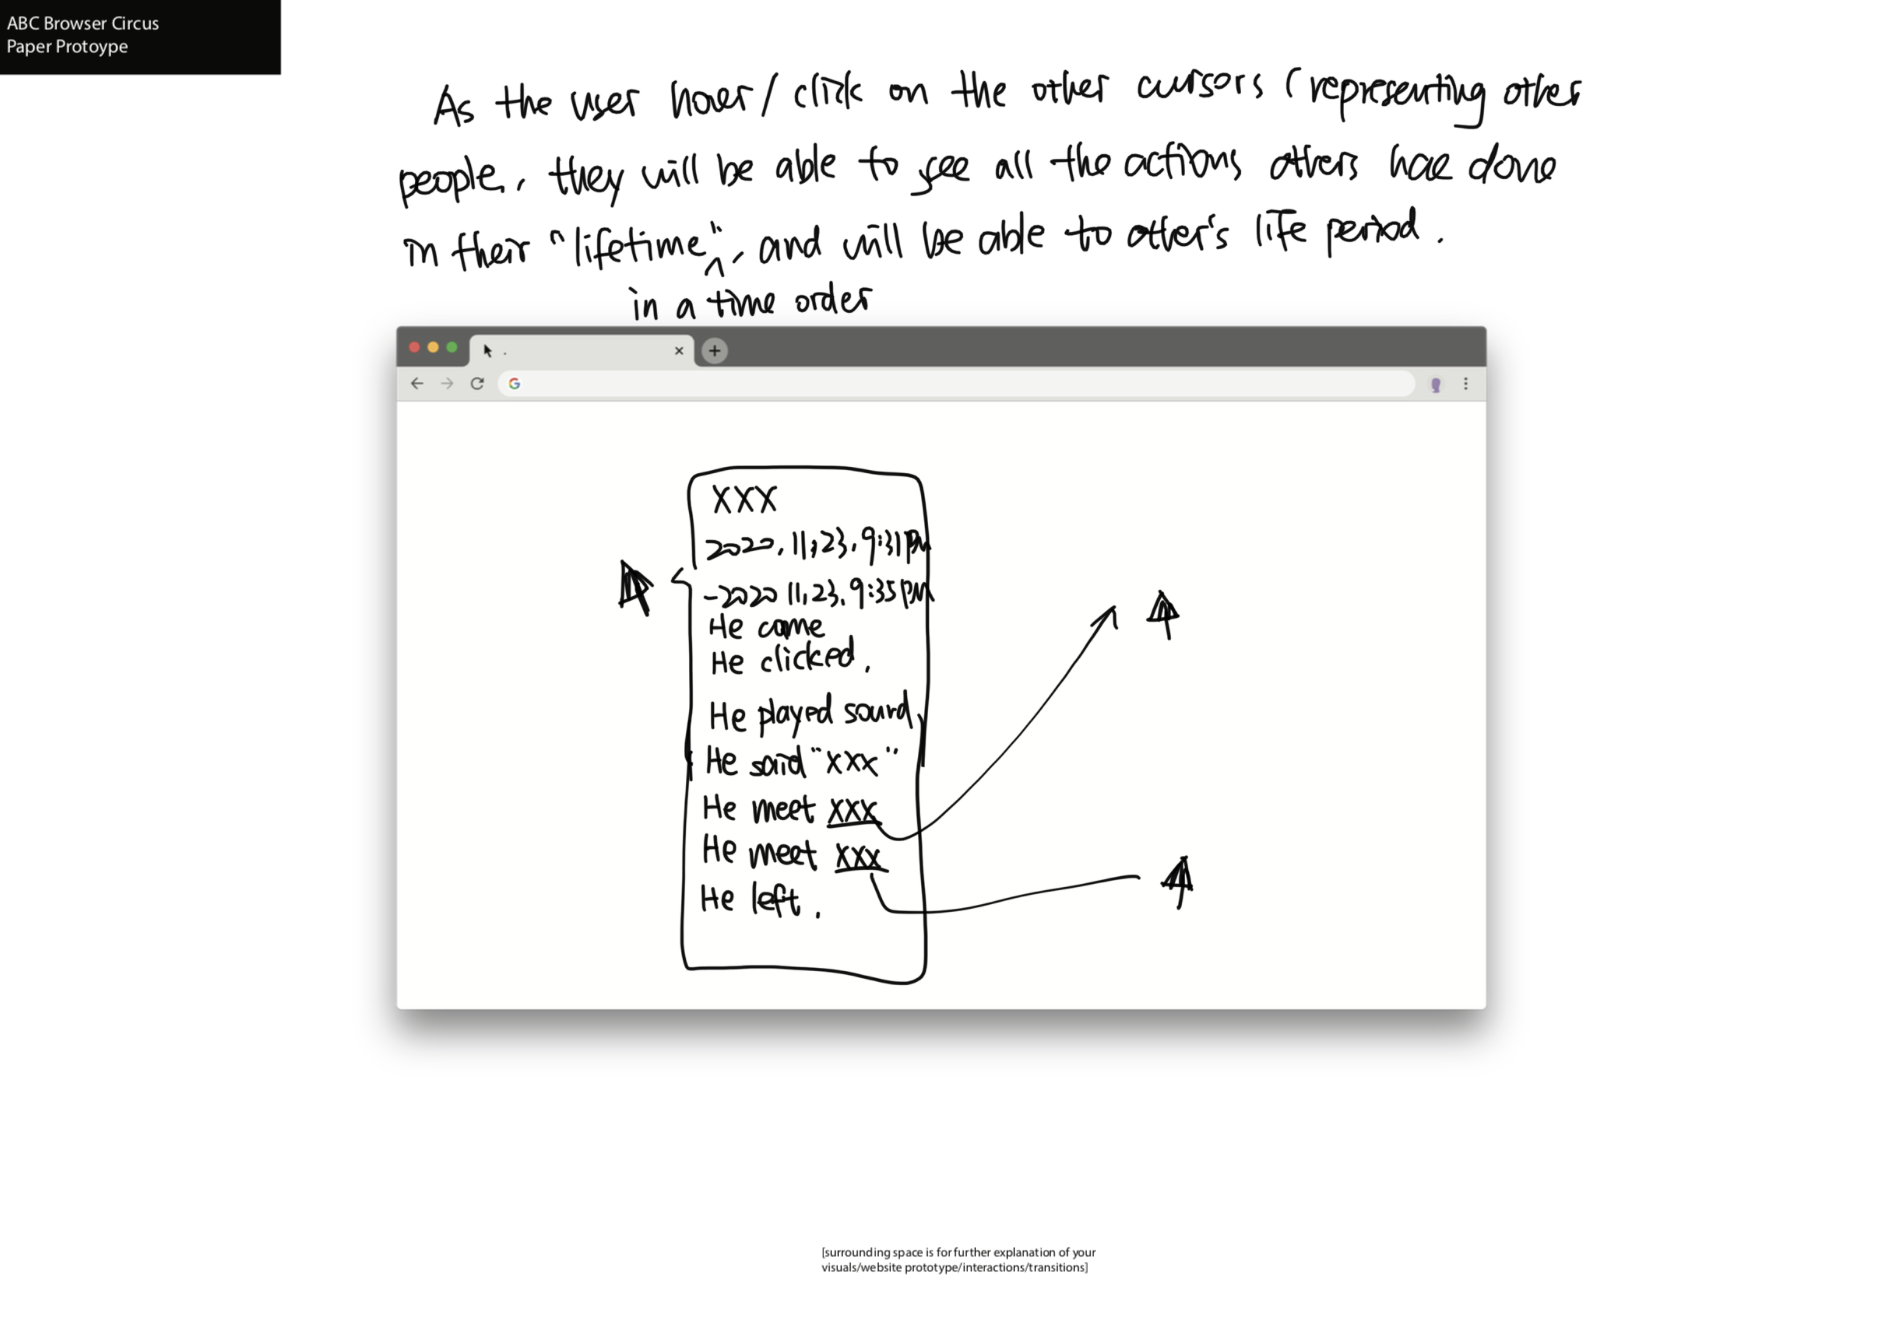 ABC Browser Circus
Paper Protoype
As the user hover/click on the other cursors (representing other
people, they will be able to see all the actions others hae done
in their "lifetime", and will be able to other's life period.
in a time order
XXX
2020,11,23,9:31PM
-2020 11,23,9:35PM
He came
He clicked,
He played sound,
He said "xxx"
He meet xxx
He meet xxx
He left.
[surrounding space is for further explanation of your
visuals/website prototype/interactions/transitions]